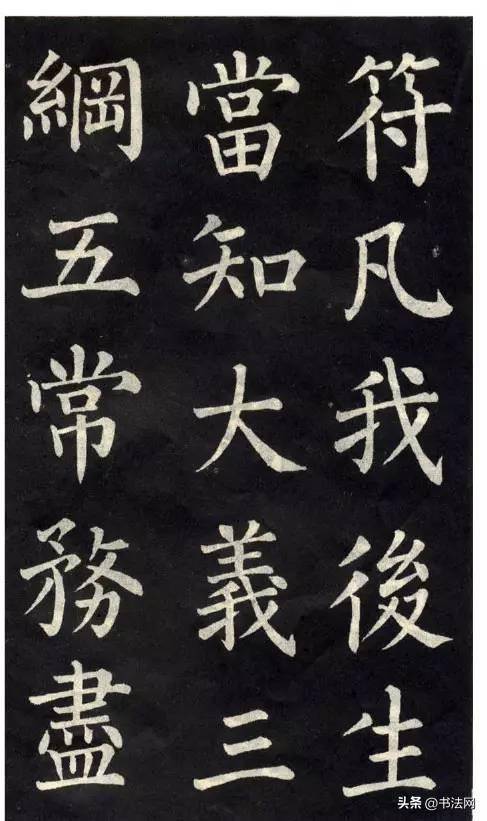 符凡我後生
當知大義三
綱五常務盡
头条 @书法网